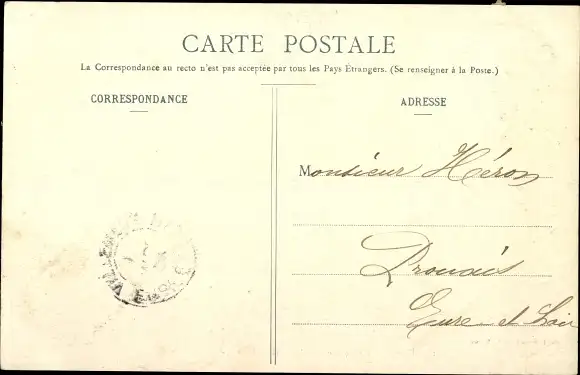 CARTE POSTALE
La Correspondance au recto n'est pas acceptée par tous les Pays Étrangers. (Se renseigner à la Poste.)
CORRESPONDANCE
ADRESSE
Monsieur Héron
Prouais
Eure-et-Loir